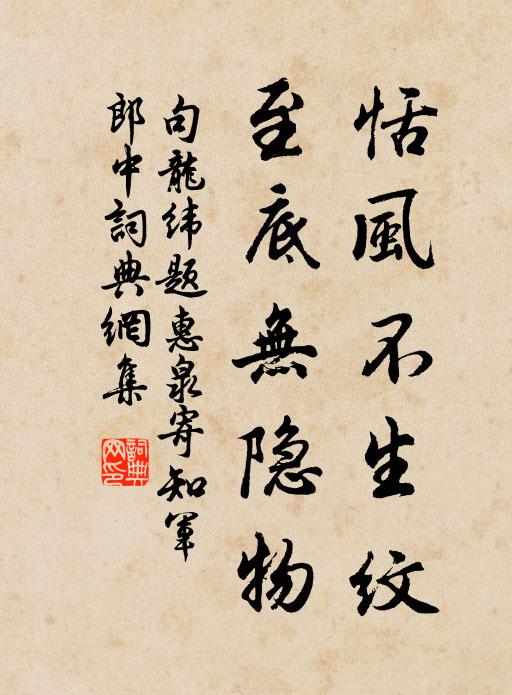 恬風不生紋
至底無隐物
句龍纬题惠泉寄知軍
郎中詞典網集
詞典
网印